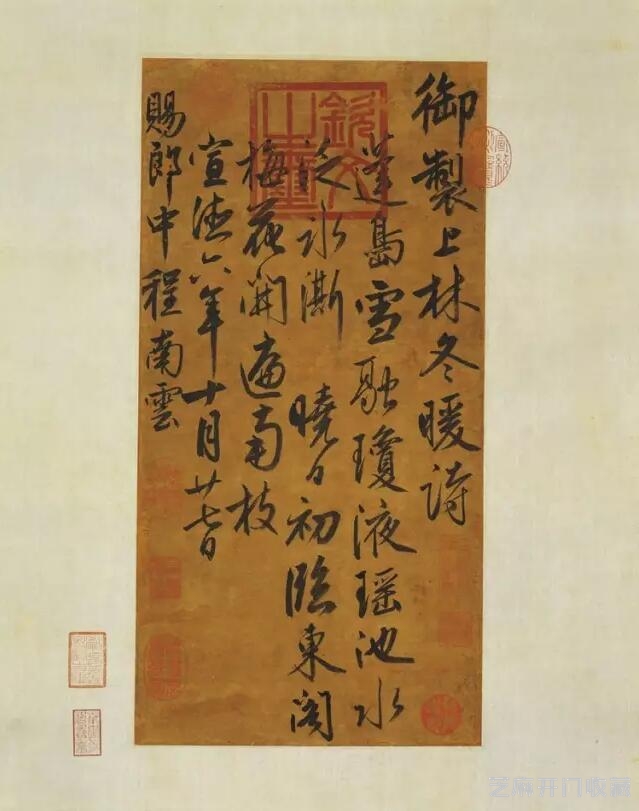 御製上林冬暖詩
蓬島雪融瓊液瑶池水
泛冰澌　曉日初臨東閣
梅花開遍南枝
宣德六年十月廿七日
賜郎中程南雲
欽文之璽
芝麻开门收藏